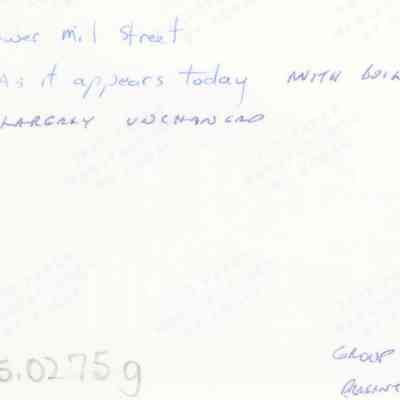 ower mil street
As it appears today WITH
LARGELY UNCHANGED
5.0275g
GROUP